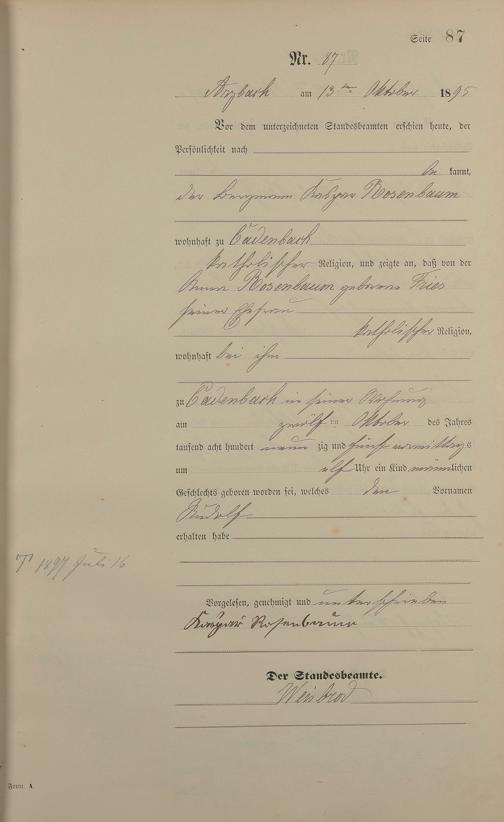 Seite 87
Nr. 87
Arzbach am 13ten Oktober 1895
Vor dem unterzeichneten Standesbeamten erschien heute, der
Persönlichkeit nach
be kannt,
der Bergmann Kaspar Rosenbaum
wohnhaft zu Cadenbach
katholischer Religion, und zeigte an, daß von der
Anna Rosenbaum geborene Fries
seiner Ehefrau
katholischer Religion,
wohnhaft bei ihm
zu Cadenbach in seiner Wohnung
am zwölf ten Oktober des Jahres
tausend acht hundert neun zig und fünf vormittags
um elf Uhr ein Kind männlichen
Geschlechts geboren worden sei, welches den Vornamen
Rudolf
erhalten habe
1897 Juli 16
Vorgelesen, genehmigt und unterschrieben
Kaspar Rosenbaum
Der Standesbeamte.
Weisbrod
Form. A